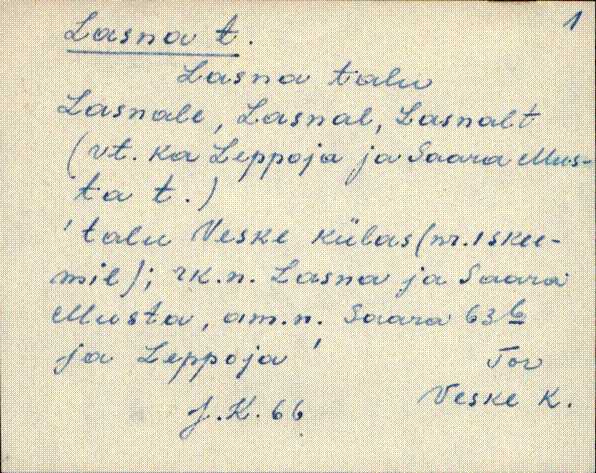 1
Lasna t.
Lasna talu
Lasnale, Lasnal, Lasnalt
(vt. ka Leppoja ja Saara Mus-
ta t.)
'talu Veske külas (nr. 1 skee-
mil); rk.n. Lasna ja Saara
Musta, am.n. Saara 63b
ja Leppoja'
Tor
Veske k.
J.K. 66